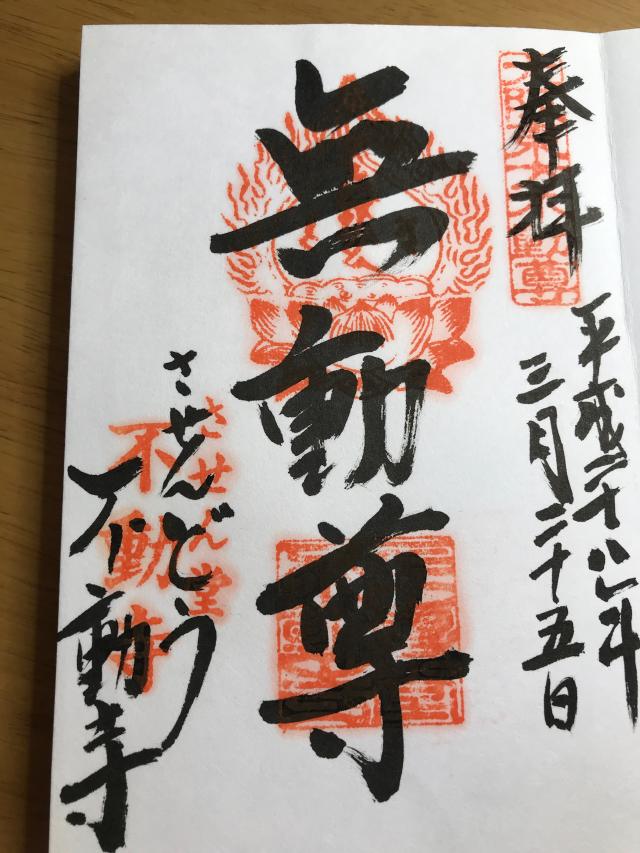 奉拝
平成二十八年
三月二十五日
無動尊
させんどう
不動寺
させん堂
不動寺